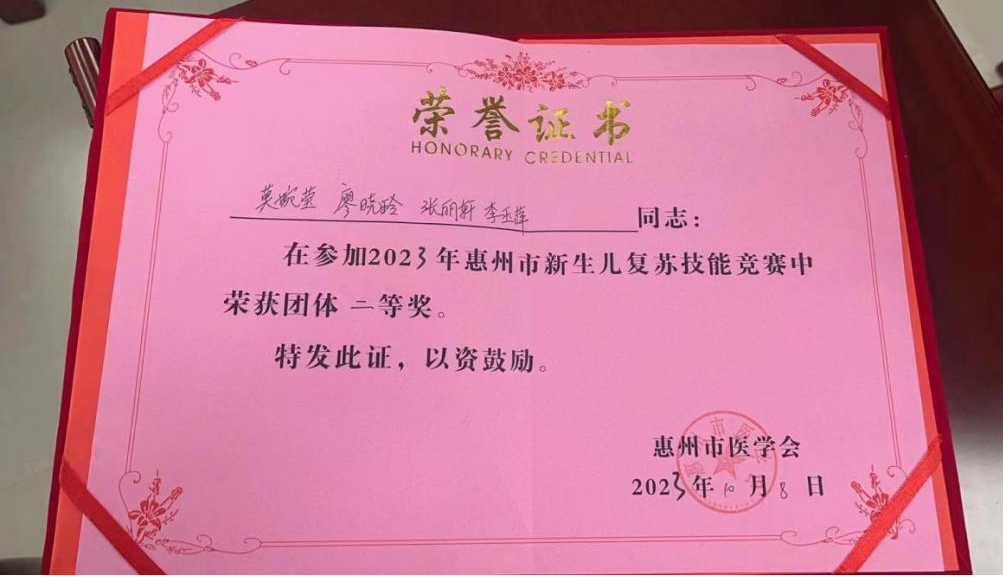 荣誉证书
HONORARY CREDENTIAL
莫婉莹 廖晓玲 张丽轩 李玉萍 同志：
在参加2023年惠州市新生儿复苏技能竞赛中
荣获团体 二等奖。
特发此证，以资鼓励。
惠州市医学会
2023年10月8日